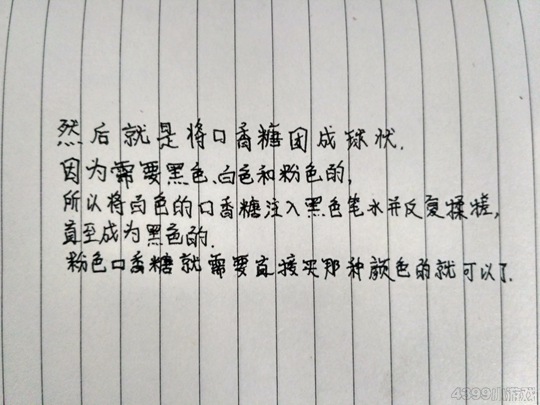 然后就是将口香糖团成球状.
因为需要黑色、白色和粉色的,
所以将白色的口香糖注入黑色笔水并反复揉搓,
直至成为黑色的.
粉色口香糖就需要直接买那种颜色的就可以了.
4399小游戏